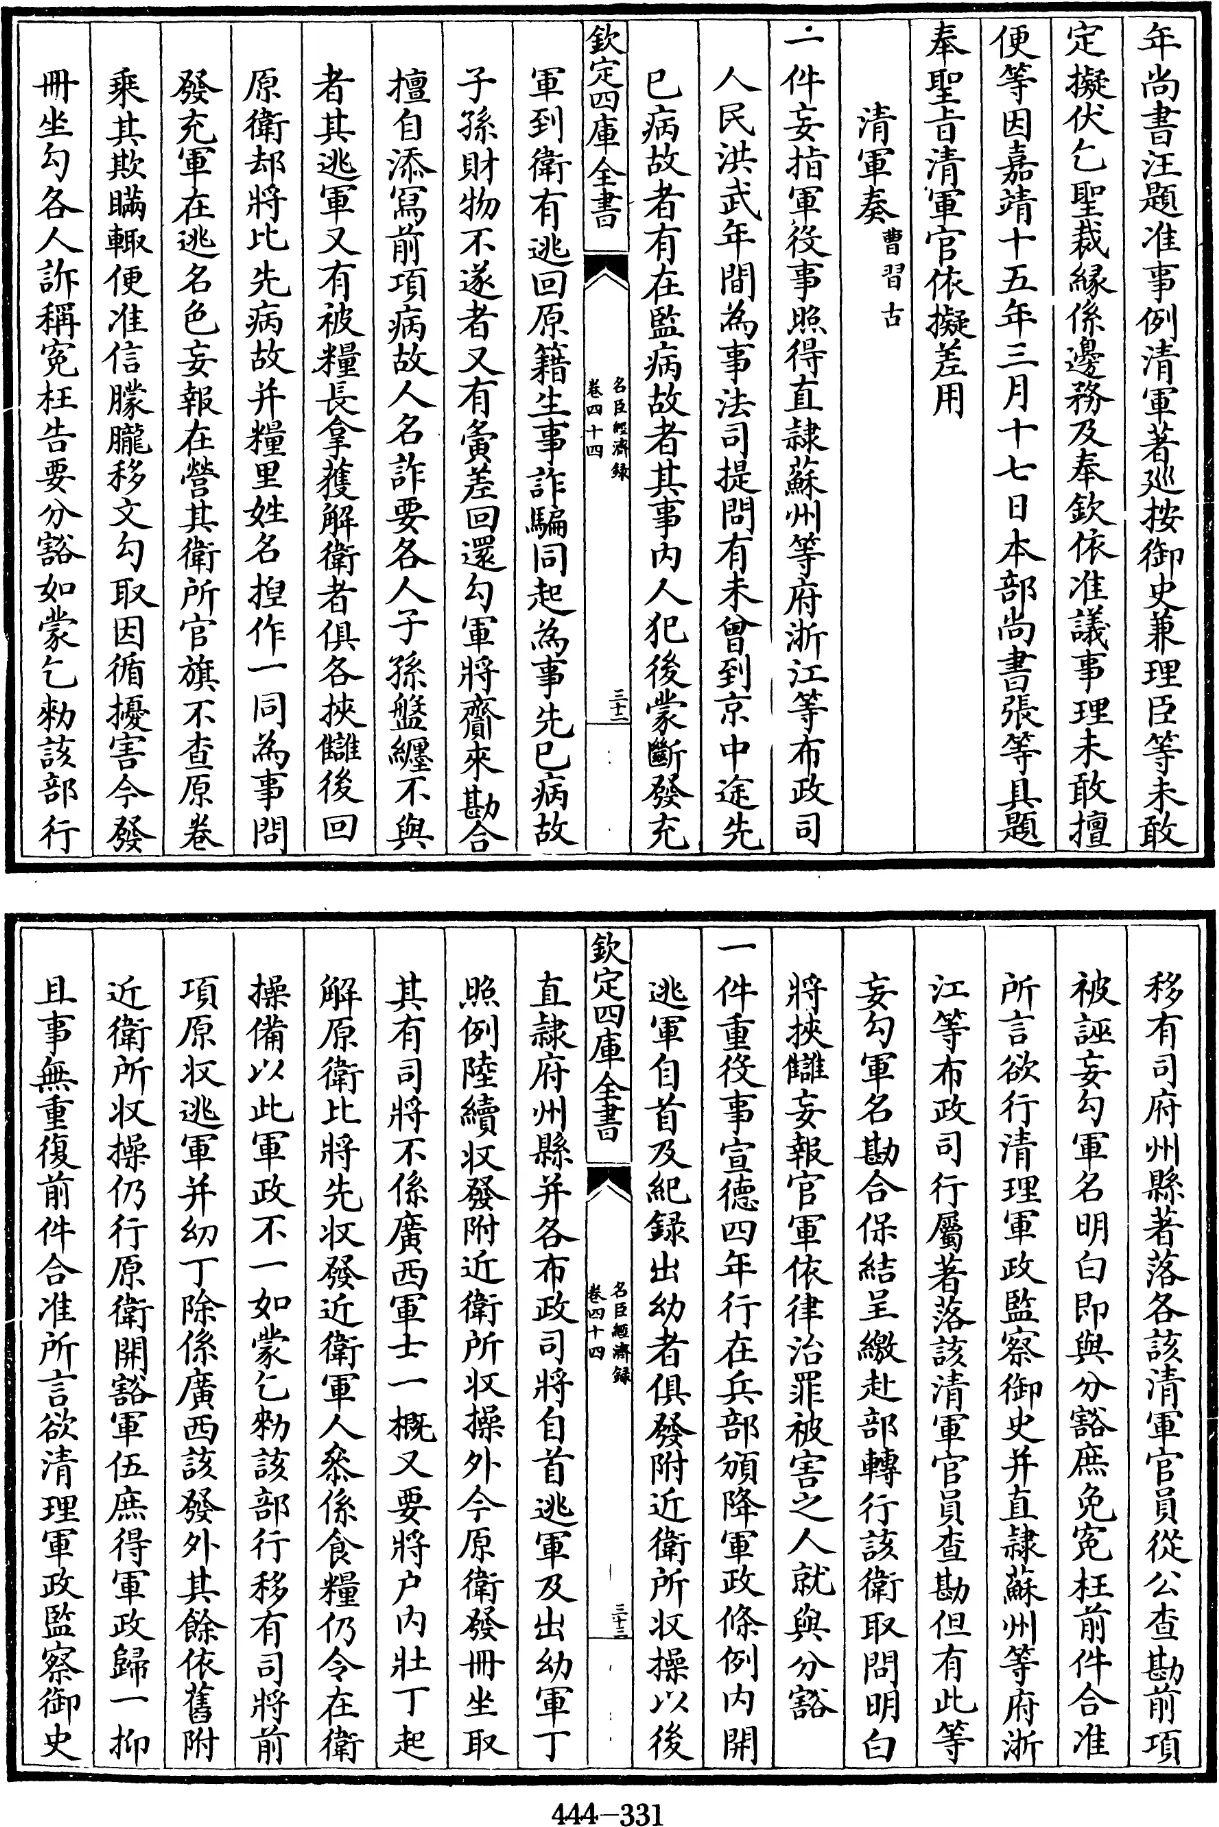 年尚書汪題准事例清軍著廵按御史兼理臣等未敢
定擬伏乞聖裁緣係邊務及奉欽依准議事理未敢擅
便等因嘉靖十五年三月十七日本部尚書張等具題
奉聖旨清軍官依擬差用
清軍奏 曹習古
一件妄指軍役事照得直隷蘇州等府浙江等布政司
人民洪武年間為事法司提問有未曾到京中途先
已病故者有在監病故者其事内人犯後蒙斷發充
欽定四庫全書
名臣經濟録
卷四十四
三十二
軍到衛有逃回原籍生事詐騙同起為事先已病故
子孫財物不遂者又有夤差回還勾軍將齎來勘合
擅自添寫前項病故人名詐要各人子孫盤纏不與
者其逃軍又有被糧長拿獲解衛者俱各挾讎後回
原衛却將比先病故并糧里姓名揑作一同為事問
發充軍在逃名色妄報在營其衛所官旗不查原卷
乘其欺瞞輙便准信朦朧移文勾取因循擾害今發
冊坐勾各人訴稱寃枉告要分豁如蒙乞勑該部行
移有司府州縣著落各該清軍官員從公查勘前項
被誣妄勾軍名明白即與分豁庶免寃枉前件合准
所言欲行清理軍政監察御史并直隷蘇州等府浙
江等布政司行屬著落該清軍官員查勘但有此等
妄勾軍名勘合保結呈繳赴部轉行該衛取問明白
將挾讎妄報官軍依律治罪被害之人就與分豁
一件重役事宣德四年行在兵部頒降軍政條例内開
逃軍自首及紀録出幼者俱發附近衛所収操以後
欽定四庫全書
名臣經濟録
卷四十四
三十三
直隷府州縣并各布政司將自首逃軍及出幼軍丁
照例陸續収發附近衛所収操外今原衛發冊坐取
其有司將不係廣西軍士一概又要將户内壯丁起
解原衛比將先収發近衛軍人叅係食糧仍令在衛
操備以此軍政不一如蒙乞勑該部行移有司將前
項原収逃軍并幼丁除係廣西該發外其餘依舊附
近衛所収操仍行原衛開豁軍伍庶得軍政歸一抑
且事無重復前件合准所言欲清理軍政監察御史
444-331